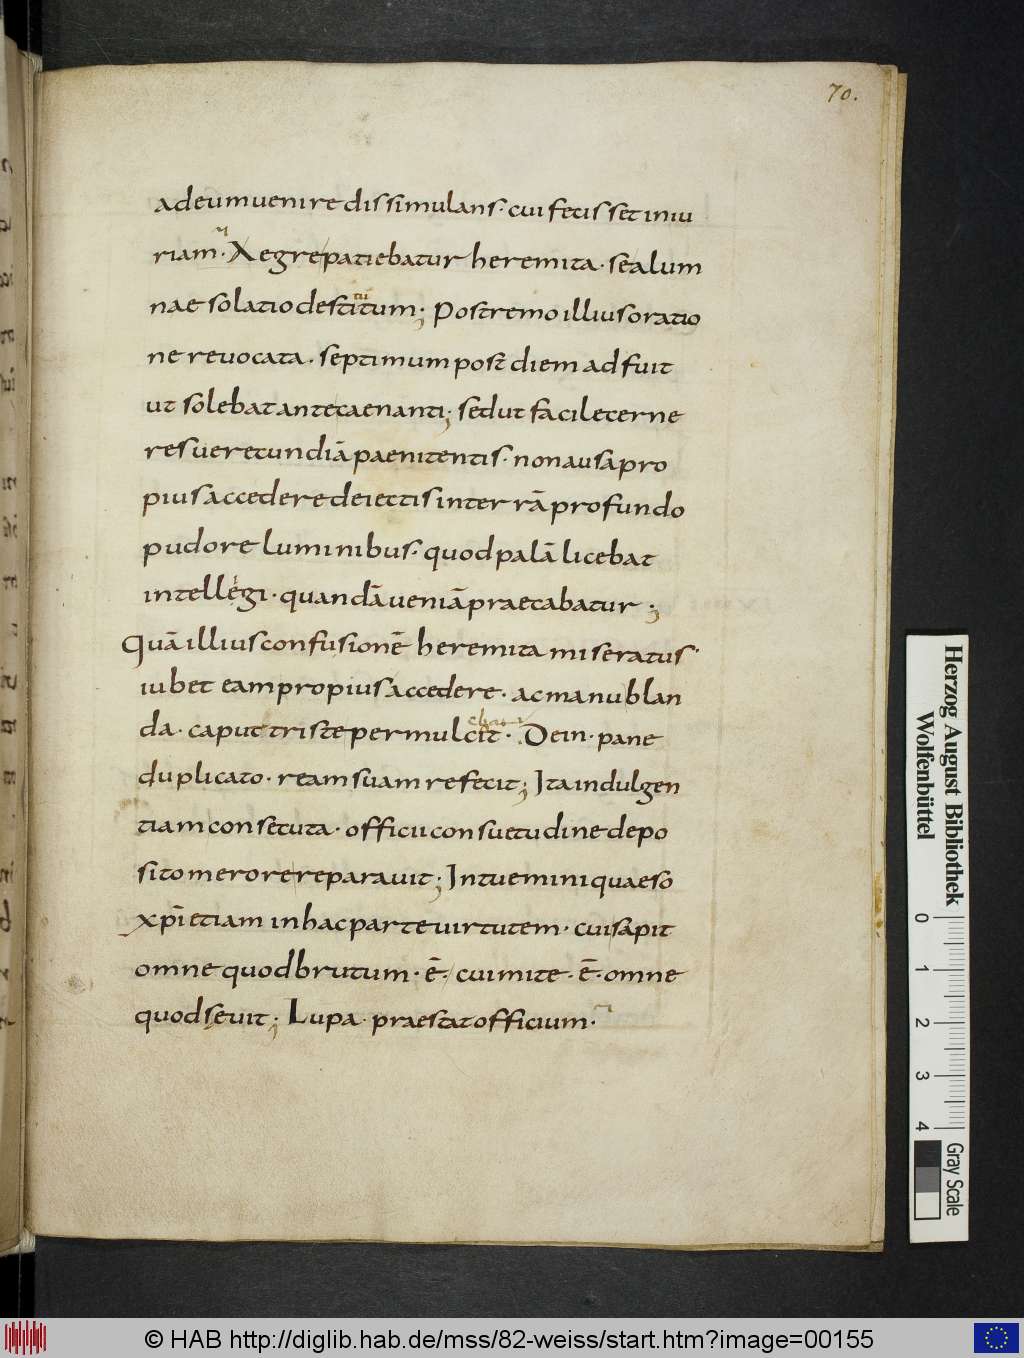 70.
ad eum uenire dissimulans· cui fecisset iniu
riam· Aegre patiebatur heremita· se alum
nae solatio destitutum; Postremo illius oratio
ne reuocata· septimum post diem adfuit
ut solebat ante caenanti; sed ut facile cerne
res uerecundiā paenitentis· non ausa pro
pius accedere deiectis in terrā profundo
pudore luminibus· quod palā licebat
intellegi· quandā ueniā praecabatur;
Quā illius confusionē heremita miseratus·
iubet eam propius accedere· ac manu blan
da· caput triste permulcit· Dein· pane
duplicato· ream suam refecit; Ita indulgen
tiam consecuta· officii consuetudine depo
sito merore reparauit; Intuemini quaeso
xp̄i etiam in hac parte uirtutem· cui sapit
omne quod brutum· ē· cui mite· ē· omne
quod sęuit; Lupa· praestat officium·
Herzog August Bibliothek
Wolfenbüttel
0 1 2 3 4
Gray Scale
© HAB http://diglib.hab.de/mss/82-weiss/start.htm?image=00155